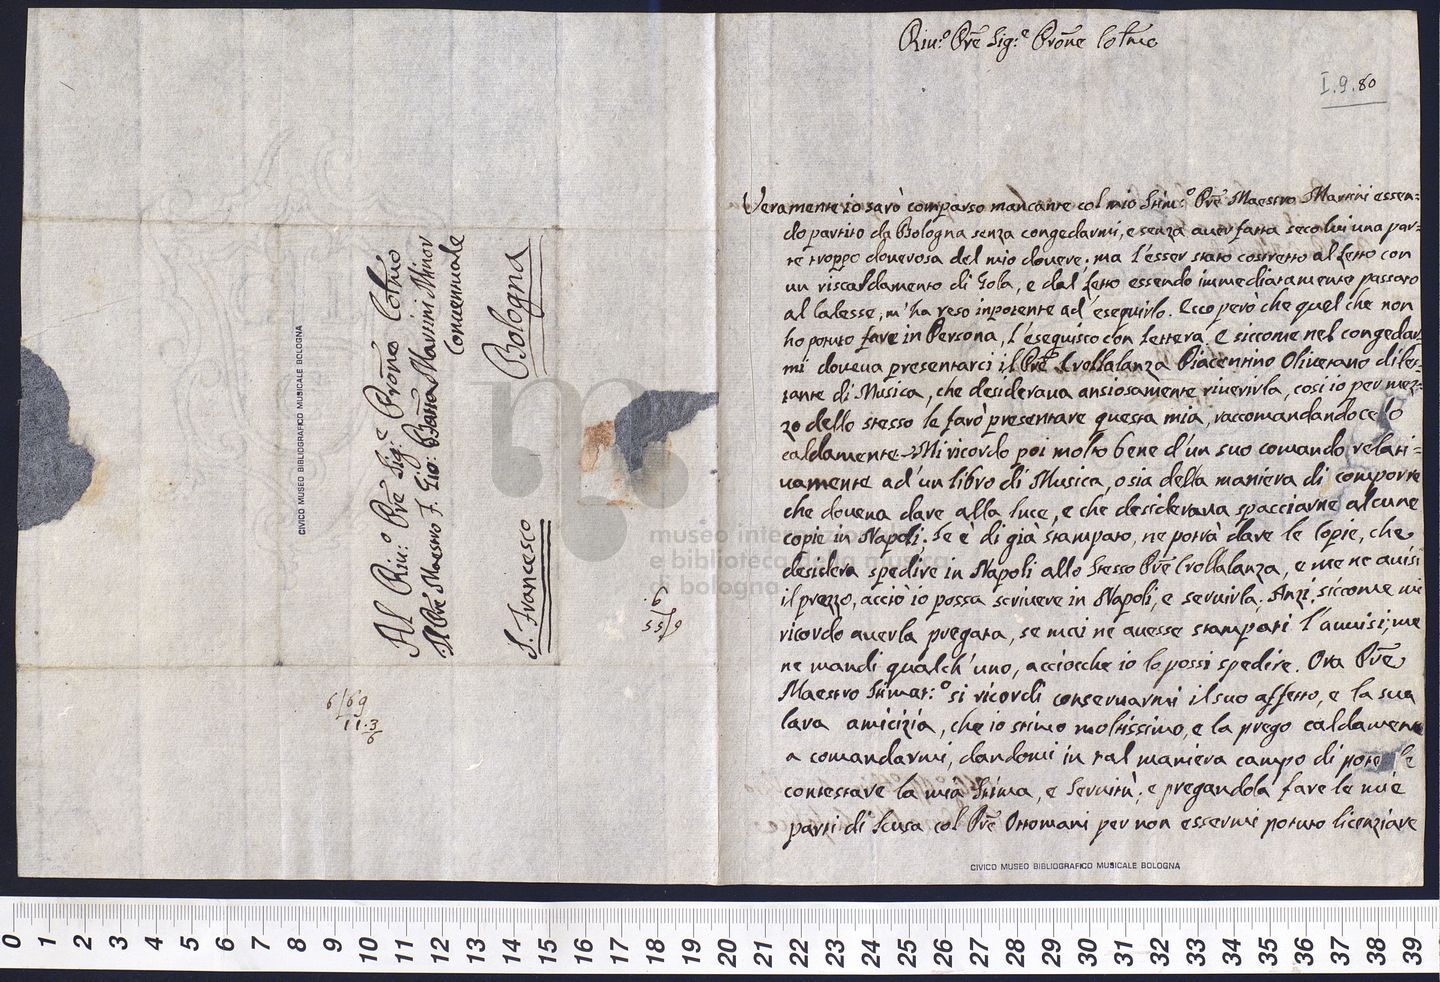 Riu:º Pre Sig:e Prone Colmo
I.9.80
Veramente io sarò comparso mancante col mio Stim:º Pre Maestro Martini essen-
do partito da Bologna senza congedarmi, e senza auer fatta seco lui una par-
te troppo douerosa del mio douere; ma l'esser stato costretto al letto con
un riscaldamento di Gola, e dal letto essendo immediatamente passato
al Calesse, m'ha reso inpotente ad' eseguirlo. Ecco però che quel che non
ho potuto fare in Persona, l'eseguisco con Lettera. E siccome nel congedar
mi doueua presentarci il Pre Crollalanza Piacentino Oliuetano dilet-
tante di Musica, che desideraua ansiosamente riuerirla, così io per mez-
zo dello stesso le farò presentare questa mia, raccomandandocelo
caldamente. Mi ricordo poi molto bene d'un suo comando relati-
uamente ad' un libro di Musica, o sia della maniera di comporre
che doueua dare alla luce, e che desideraua spacciarne alcune
copie in Napoli; Se è di già stampato, ne potrà dare le Copie, che
desidera spedire in Napoli allo stesso Pre Crollalanza, e me ne auisi
il prezzo, acciò io possa scriuere in Napoli, e seruirla. Anzi, siccome mi
ricordo auerla pregata, se mai ne auesse stampati l'auuisi; me
ne mandi qualch'uno, acciocche io lo possi spedire. Ora Pre
Maestro Stimat:º si ricordi conseruarmi il suo affetto, e la sua
cara amicizia, che io stimo moltissimo, e la prego caldamente
a comandarmi, dandomi in tal maniera campo di poterle
contestare la mia Stima, e Seruitù; e pregandola fare le mie
parti di Scusa col Pre Ottomani per non essermi potuto licenziare
CIVICO MUSEO BIBLIOGRAFICO MUSICALE BOLOGNA
Al Riu:º Pre Sig:e Prone Colmo
Il Pre Maestro F. Gio: Batta Martini Minor
Conuentuale
Bologna
S. Francesco
CIVICO MUSEO BIBLIOGRAFICO MUSICALE BOLOGNA
museo internazionale
e biblioteca della musica
di bologna
0 1 2 3 4 5 6 7 8 9 10 11 12 13 14 15 16 17 18 19 20 21 22 23 24 25 26 27 28 29 30 31 32 33 34 35 36 37 38 39